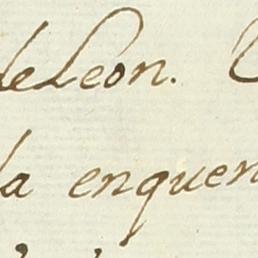 de Leon.
la enquen